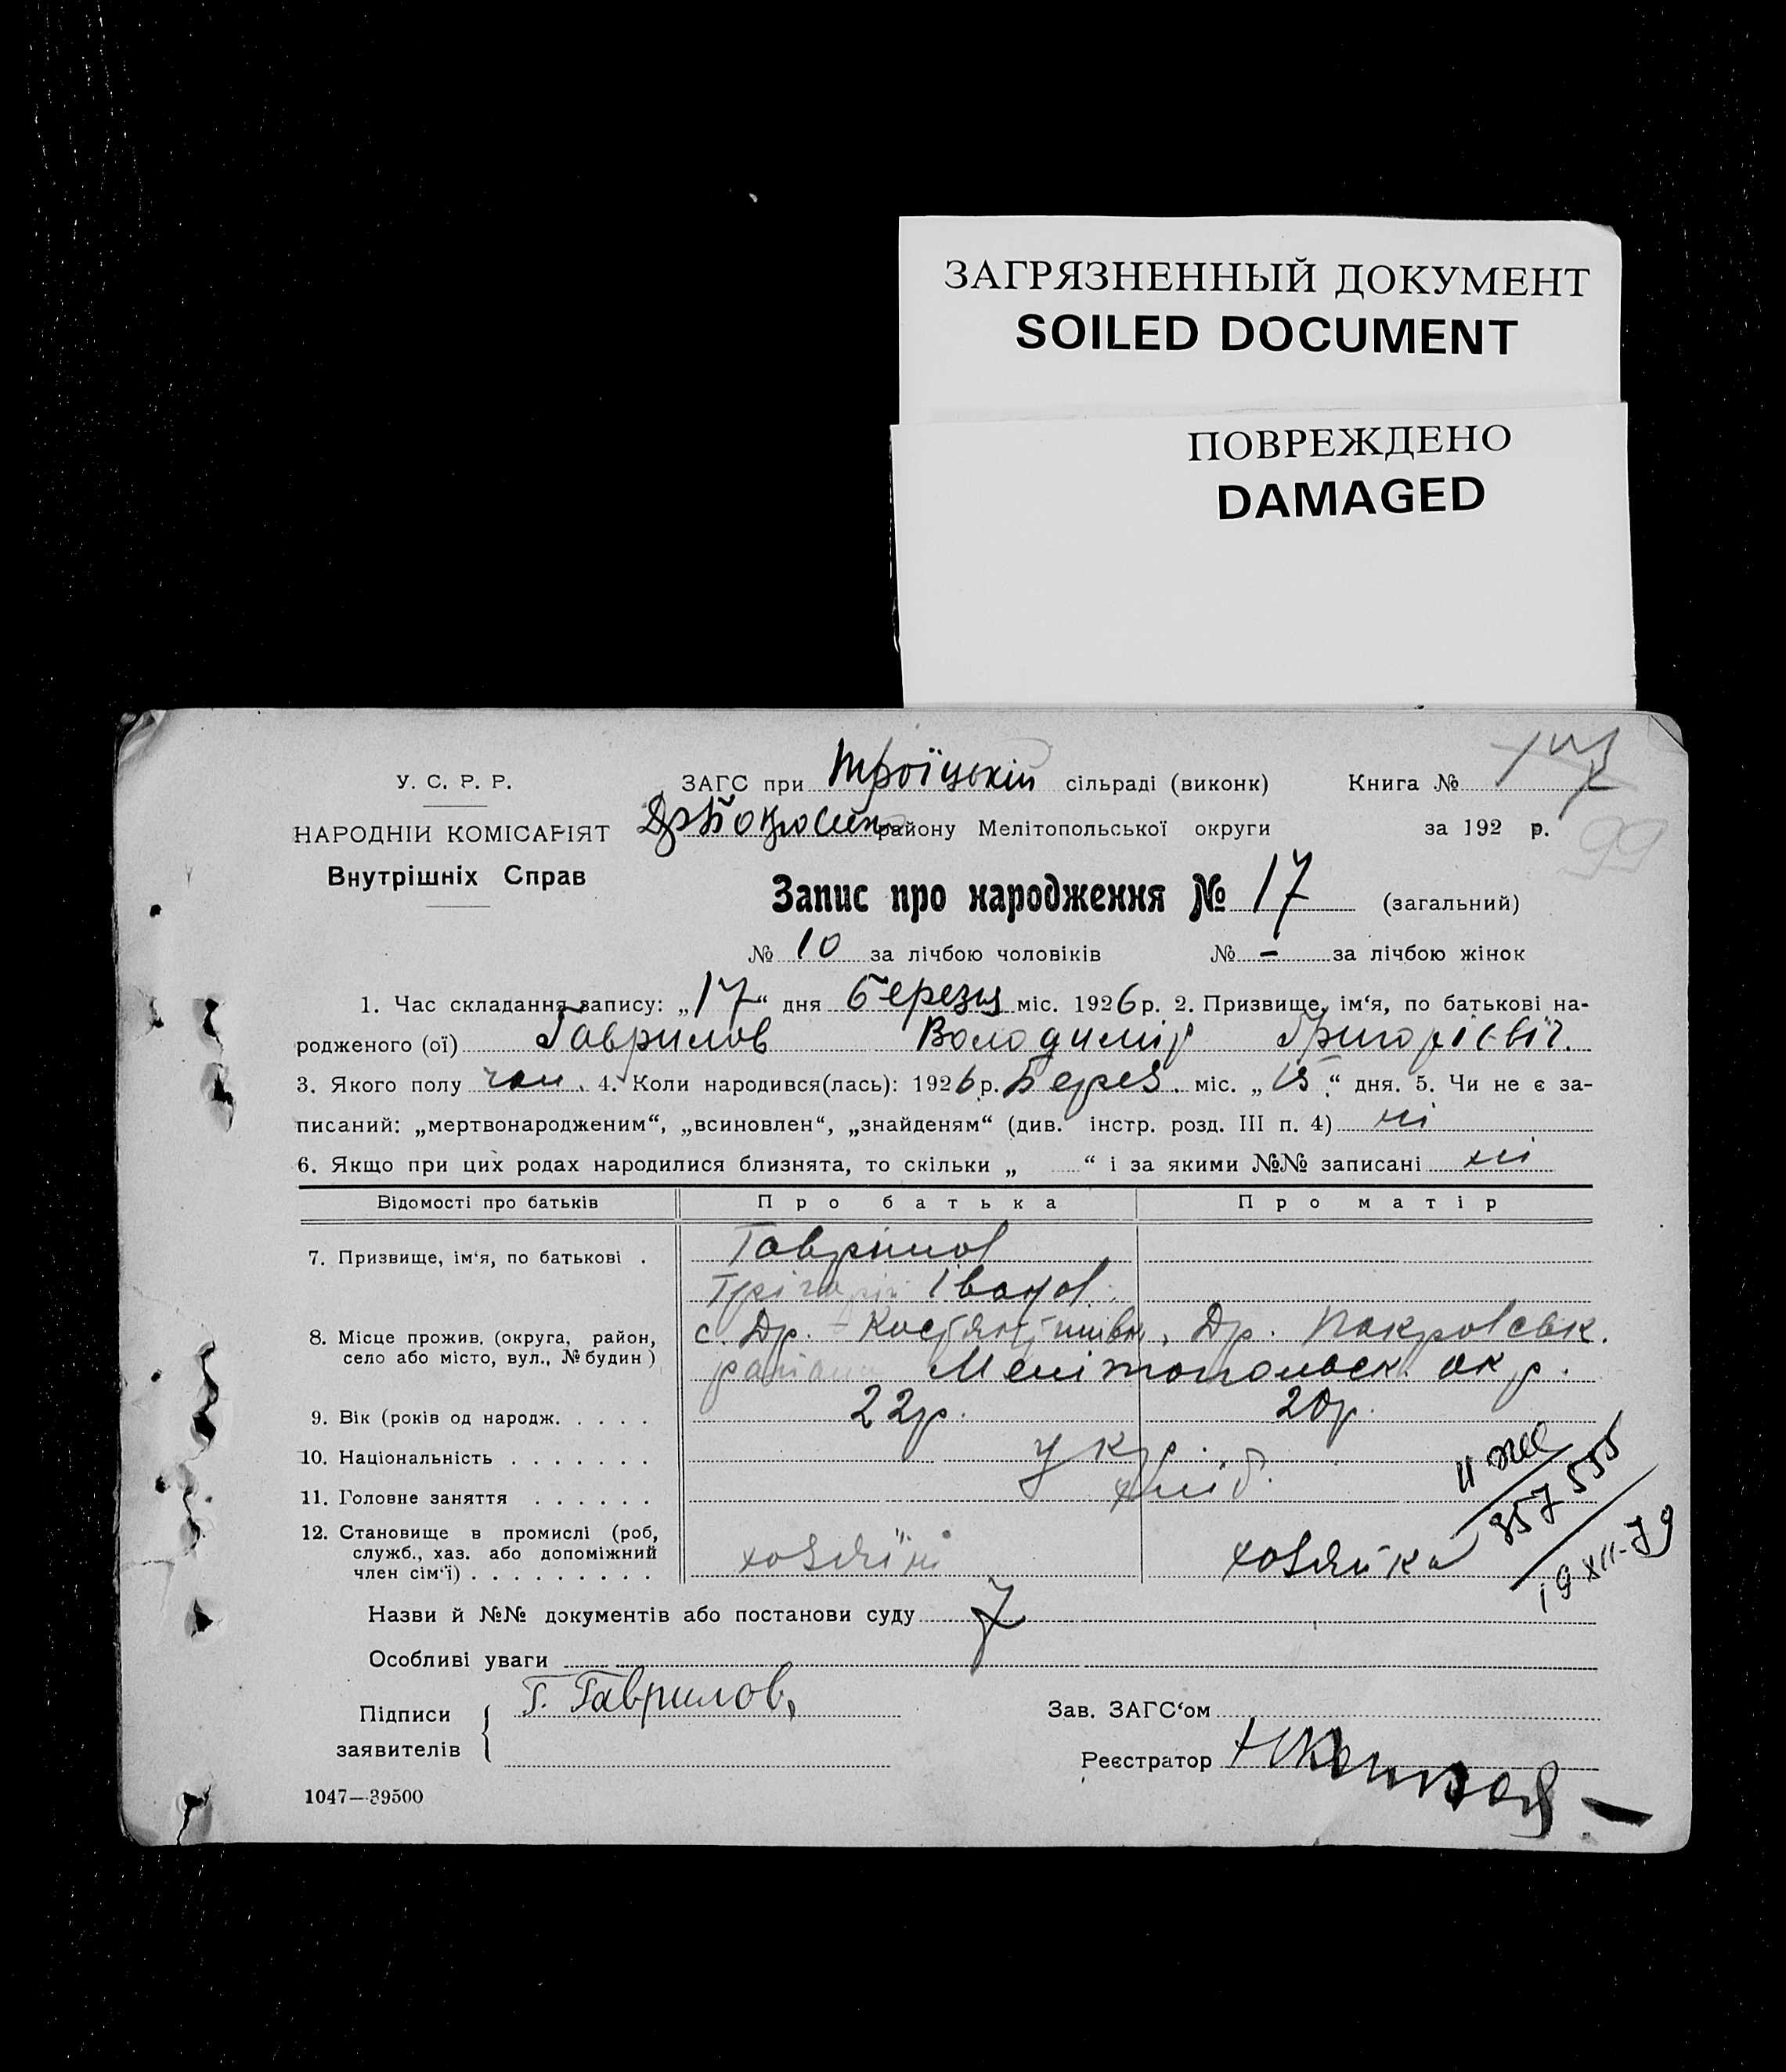 ЗАГРЯЗНЕННЫЙ ДОКУМЕНТ
SOILED DOCUMENT
ПОВРЕЖДЕНО
DAMAGED
У. С. Р. Р.
НАРОДНІЙ КОМІСАРІЯТ
Внутрішніх Справ
ЗАГС при Троїцькій сільраді (виконк) Книга №
району Мелітопольської округи за 192 р.
99
Запис про народження № 17 (загальний)
№ 10 за лічбою чоловіків № – за лічбою жінок
1. Час складання запису: „17“ дня березня міс. 1926 р. 2. Призвище, ім‘я, по батькові на-
родженого (ої) Гаврилов Володимір Григорієвіч.
3. Якого полу чол. 4. Коли народився(лась): 1926 р. Берез. міс. „15“ дня. 5. Чи не є за-
писаний: „мертвонародженим“, „всиновлен“, „знайденям“ (див. інстр. розд. III п. 4) ні
6. Якщо при цих родах народилися близнята, то скільки „ “ і за якими №№ записані ні
Відомості про батьків Про батька Про матір
7. Призвище, ім‘я, по батькові . Гаврилов
Грігорій Іванов.
8. Місце прожив. (округа, район, с. Др. Костянтинівк, Др. Покровськ.
село або місто, вул., № будин) району Мелітопольськ. окр.
9. Вік (років од народж. . . . . 22 р. 20 р.
10. Національність . . . . . . . укр.
11. Головне заняття . . . . . . хліб.
12. Становище в промислі (роб,
служб., хаз. або допоміжний
член сім‘ї) . . . . . . . . . хозяїн хозяйка
857555
19 XII-79
Назви й №№ документів або постанови суду
Особливі уваги
Підписи
заявителів
Г. Гаврилов,
Зав. ЗАГС‘ом
Реєстратор
1047—39500